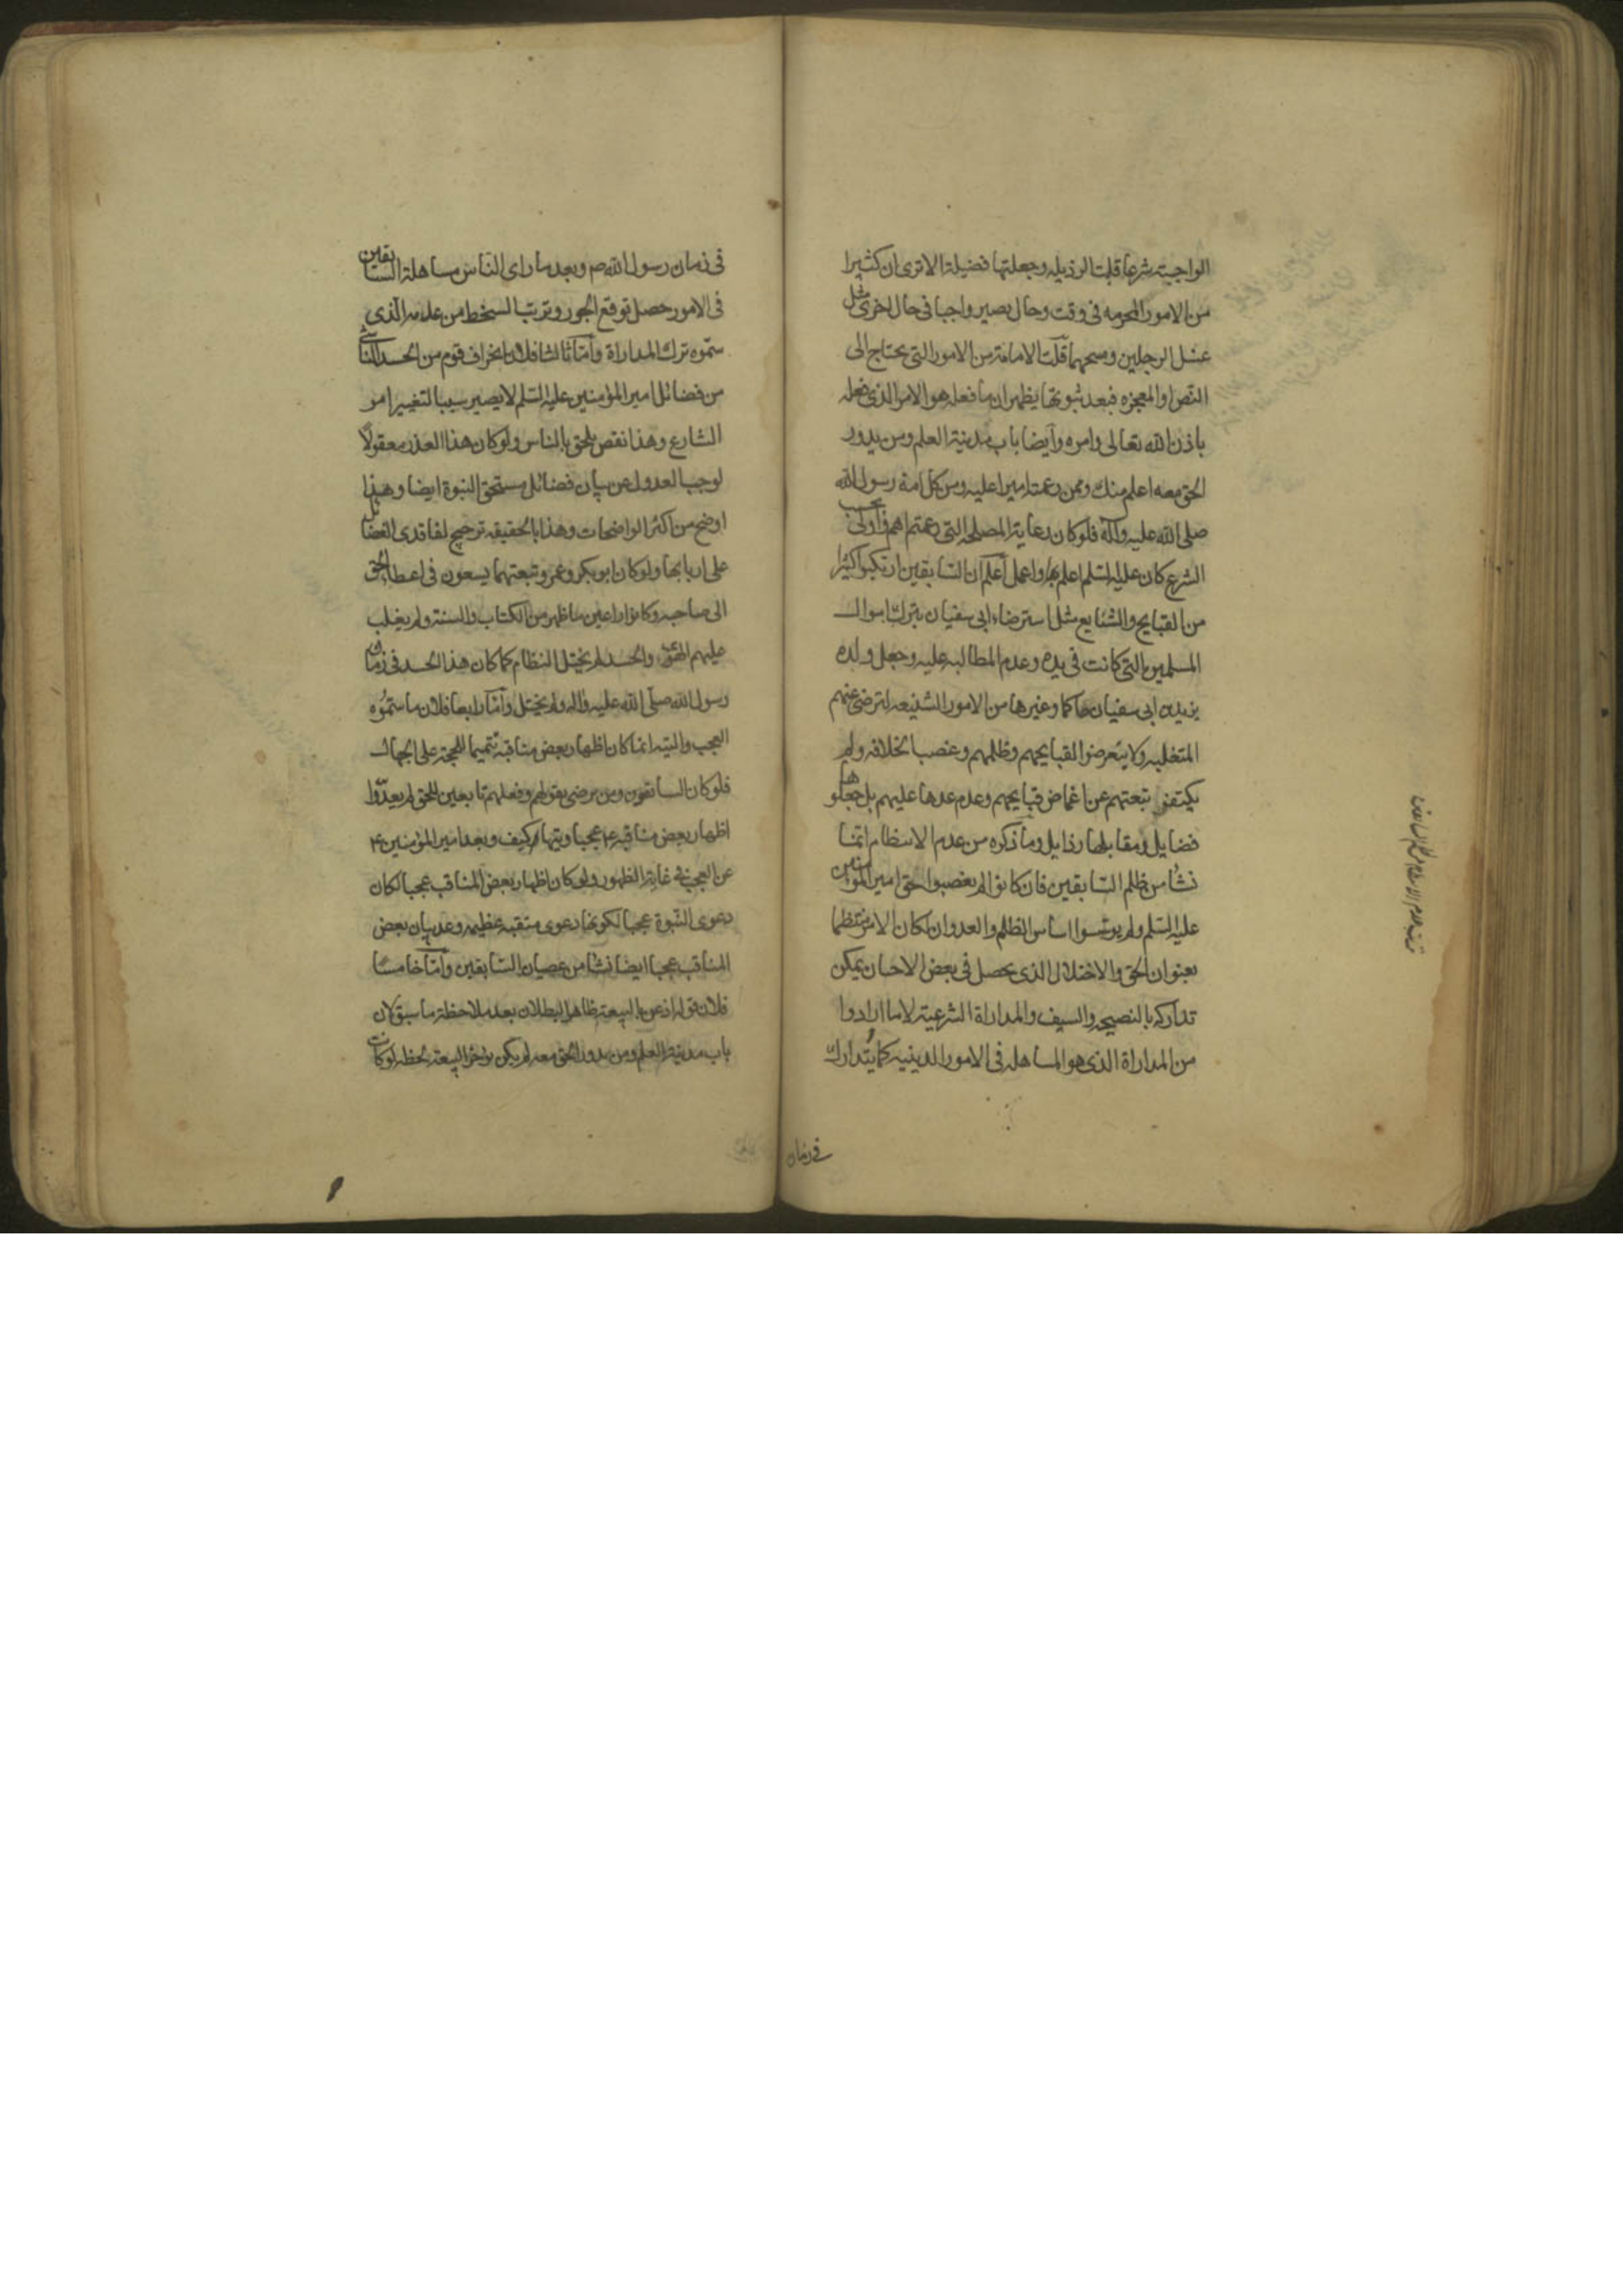 الواجبة شرعا قلبت الرذيله وجعلتها فضيلة الا ترى ان كثيرا
من الامور المحرمه فى وقت وحال يصير واجبا فى حال اخرى مثل
غسل الرجلين ومسحهما قلت الامامة من الامور التى يحتاج الى
النص او المعجزه فبعد ثبوتها يظهر ان ما فعله هو الامر الذى فعله
باذن الله تعالى وامره وايضا باب مدينة العلم ومن يدور
الحق معه اعلم منك وممن زعمته اميرا عليه ومن كل امة رسول الله
صلى الله عليه وآله فلو كان رعاية المصلحه التى زعمتم اهم واولى بحسب
الشرع كان عليه السلم اعلم بها واعمل اعلم ان السابقين ارتكبوا كثيرا
من القبايح والشنايع مثل استرضاء ابى سفيان بترك اموال
المسلمين التى كانت فى يده وعدم المطالبه عليه وجعل ولده
يزيد بن ابى سفيان حاكما وغيرها من الامور الشنيعه لترضى عنهم
المتغلبه ولا يتعرضوا لقبايحهم وظلمهم وغصب الخلافه ولم
يكتف تبعتهم عن اغماض قبايحهم وعدم عدها عليهم بل جعلوها
فضايل ومقابلها رذايل وما ذكره من عدم الانتظام انما
نشأ من ظلم السابقين فان كانوا لم يغصبوا حق امير المؤمنين
عليه السلم ولم يؤسسوا اساس الظلم والعدوان لكان الامر منتظما
بعنوان الحق والاختلال الذى يحصل فى بعض الاحيان يمكن
تداركه بالنصيحه والسيف والمداراة الشرعية لا ما ارادوا
من المداراة الذى هو المساهله فى الامور الدينيه كما يتدارك
فى زمان
فى زمان رسول الله ص وبعد ما راى الناس مساهلة السابقين
فى الامور حصل توقع الجور وترتب السخط من عدمه الذى
سموه ترك المداراة واما ثالثا فلان انحراف قوم من الحسد الناشى
من فضائل امير المؤمنين عليه السلم لا يصير سببا لتغيير امر
الشارع وهذا نقص يلحق بالناس ولو كان هذا العذر معقولا
لوجب العدول عن بيان فضائل مستحق النبوة ايضا وهذا
اوضح من اكثر الواضحات وهذا بالحقيقه ترجيح لفاقدى الفضائل
على اربابها ولو كان ابو بكر وعمر وتبعتهما يسعون فى اعطاء الحق
الى صاحبه وكانوا راعين ما ظهر من الكتاب والسنة ولم يغلب
عليهم الهوى والحسد لم يختل النظام كما كان هذا الحسد فى زمان
رسول الله صلى الله عليه واله ولم يختل واما رابعا فلان ما سموه
العجب والتيه انما كان اظهار بعض مناقبه تتميما للحجة على الجهال
فلو كان السابقون ومن يرضى بقولهم وفعلهم تابعين للحق لم يعدوا
اظهار بعض مناقبه ع عجبا وتيها كيف وبعد امير المؤمنين ع
عن العجب فى غاية الظهور ولو كان اظهار بعض المناقب عجبا لكان
دعوى النبوة عجبا لكونها دعوى منقبه عظيمه وعد بيان بعض
المناقب عجبا ايضا نشأ من عصيان السابقين واما خامسا
فلان قوله اذعن بالبيعة ظاهر البطلان بعد ملاحظة ما سبق لان
باب مدينة العلم ومن يدور الحق معه لم يكن يؤخر البيعة لحظه لو كانت